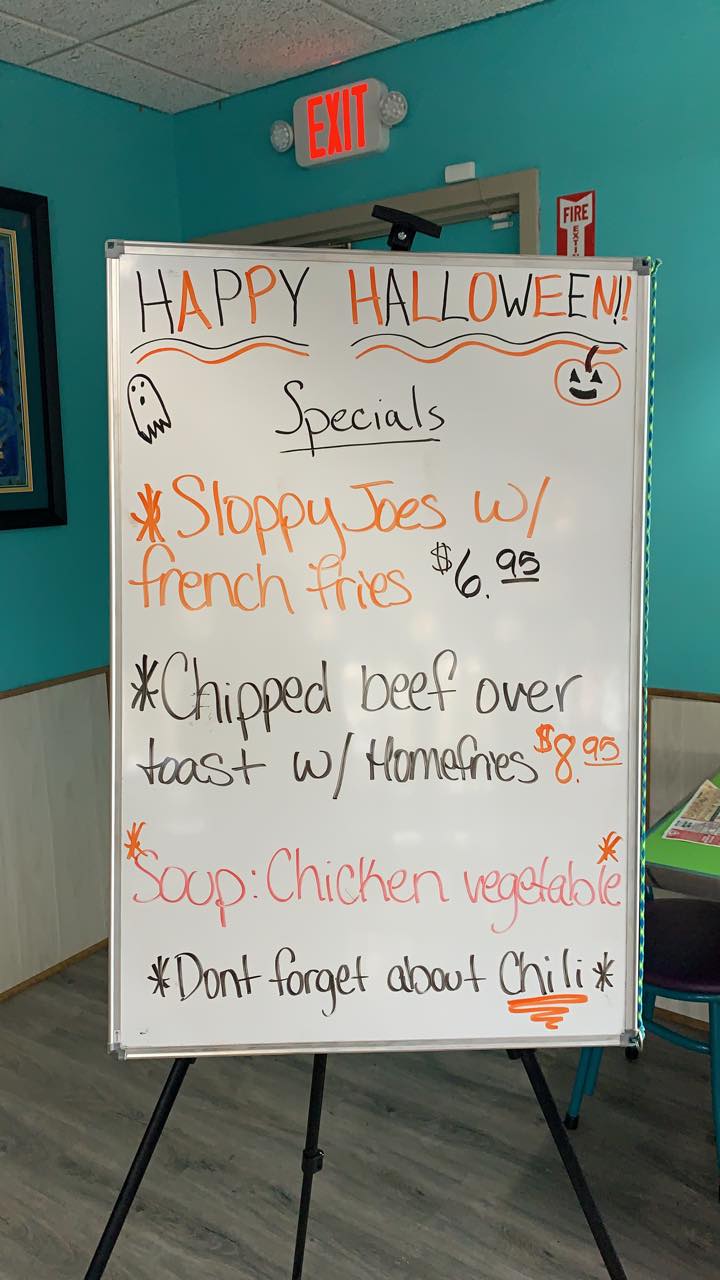 EXIT
FIRE
HAPPY HALLOWEEN!!
Specials
*Sloppy Joes w/
french fries $6.95
*Chipped beef over
toast w/ Homefries $8.95
*Soup: Chicken vegetable*
*Dont forget about Chili*